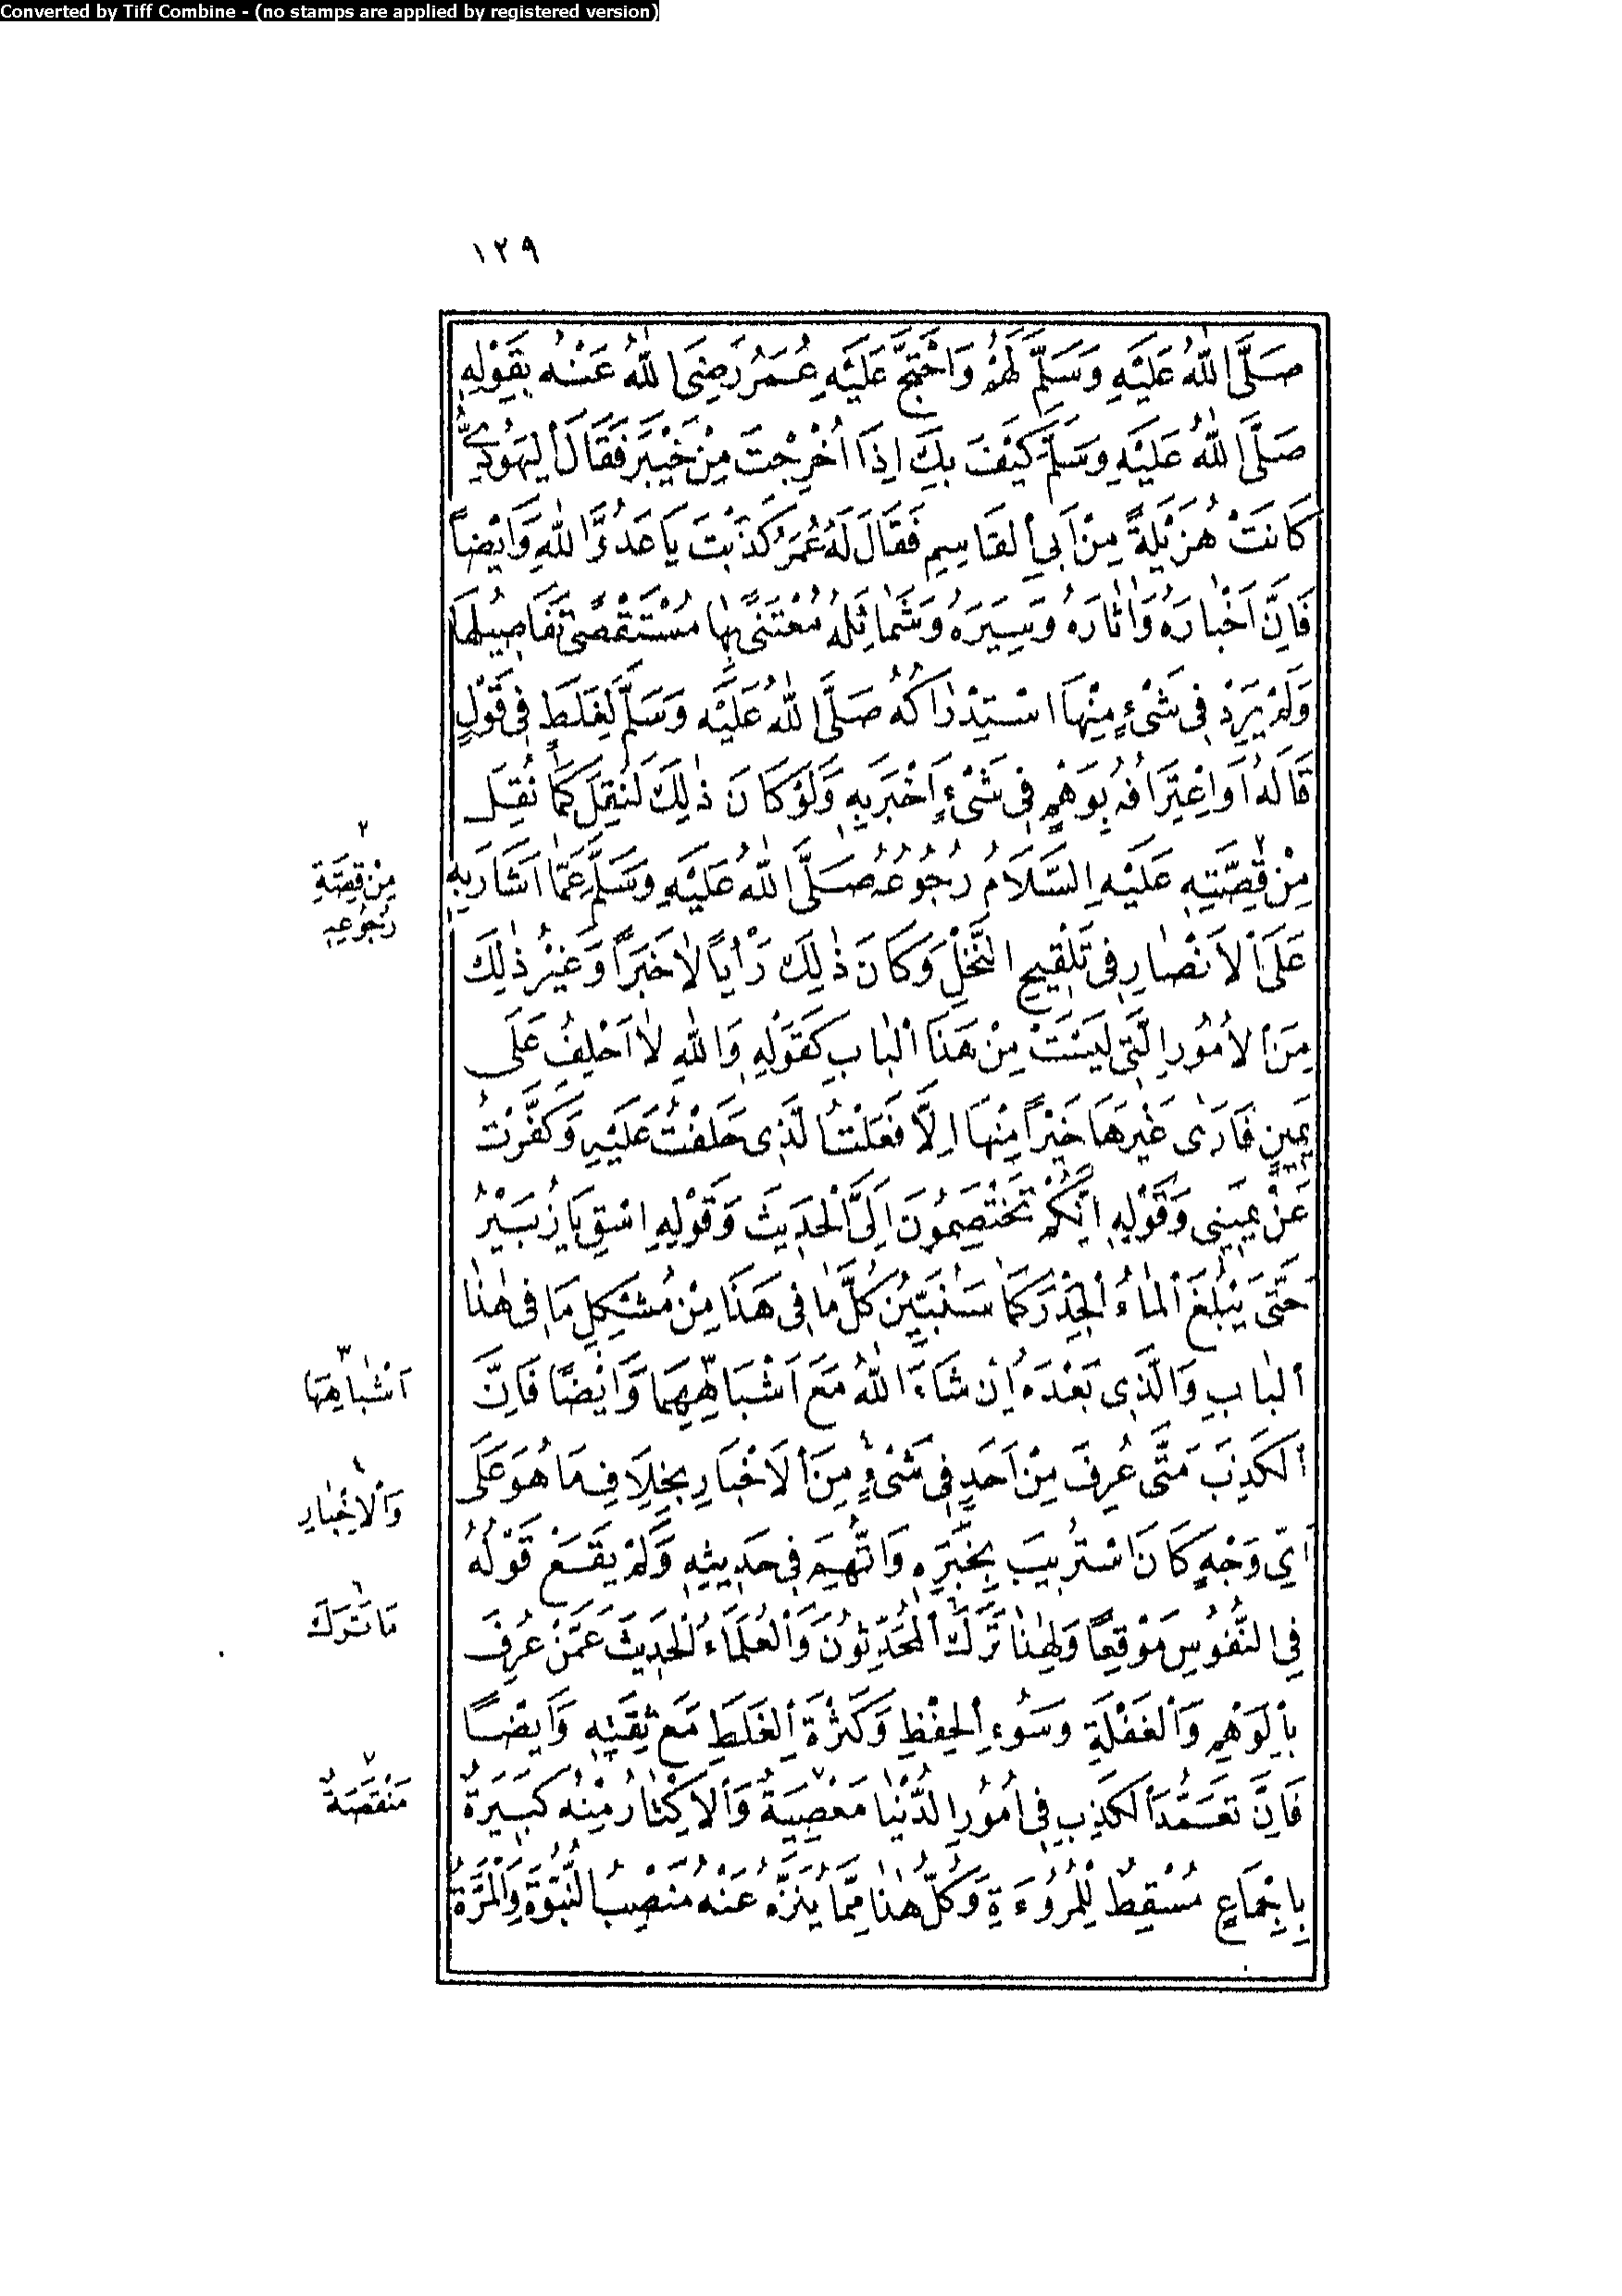 Converted by Tiff Combine - (no stamps are applied by registered version)
١٢٩
صَلَّى اللهُ عَلَيْهِ وَسَلَّمَ لَهُمْ وَاحْتَجَّ عَلَيْهِ عُمَرُ رَضِيَ اللهُ عَنْهُ بِقَوْلِهِ
صَلَّى اللهُ عَلَيْهِ وَسَلَّمَ كَيْفَ بِكَ اِذَا اُخْرِجْتَ مِنْ خَيْبَرَ فَقَالَ الْيَهُودِيُّ
كَانَتْ هُزَيْلَةً مِنْ اَبِي الْقَاسِمِ فَقَالَ لَهُ عُمَرُ كَذَبْتَ يَا عَدُوَّ اللهِ وَاَيْضاً
فَاِنَّ اَخْبَارَهُ وَاٰثَارَهُ وَسِيَرَهُ وَشَمَائِلَهُ مُعْتَنًى بِهَا مُسْتَقْصًى تَفَاصِيلُهَا
وَلَمْ يَرِدْ فِى شَىْءٍ مِنْهَا اسْتِدْرَاكُهُ صَلَّى اللهُ عَلَيْهِ وَسَلَّمَ لِغَلَطٍ فِى قَوْلٍ
قَالَهُ اَوِ اعْتِرَافُهُ بِوَهْمٍ فِى شَىْءٍ اَخْبَرَ بِهِ وَلَوْ كَانَ ذٰلِكَ لَنُقِلَ كَمَا نُقِلَ
مِنْ قِصَّتِهِ عَلَيْهِ السَّلَامُ رُجُوعُهُ صَلَّى اللهُ عَلَيْهِ وَسَلَّمَ عَمَّا اَشَارَ بِهِ
عَلَى الْاَنْصَارِ فِى تَلْقِيحِ النَّخْلِ وَكَانَ ذٰلِكَ رَأْياً لَا خَبَراً وَغَيْرُ ذٰلِكَ
مِنَ الْاُمُورِ الَّتِى لَيْسَتْ مِنْ هَذَا الْبَابِ كَقَوْلِهِ وَاللهِ لَا اَحْلِفُ عَلَى
يَمِينٍ فَاَرَى غَيْرَهَا خَيْراً مِنْهَا اِلَّا فَعَلْتُ الَّذِى حَلَفْتُ عَلَيْهِ وَكَفَّرْتُ
عَنْ يَمِينِى وَقَوْلِهِ اِنَّكُمْ تَخْتَصِمُونَ اِلَىَّ الْحَدِيثَ وَقَوْلِهِ اسْقِ يَا زُبَيْرُ
حَتَّى يَبْلُغَ الْمَاءُ الْجَدْرَ كَمَا سَنُبَيِّنُ كُلَّ مَا فِى هَذَا مِنْ مُشْكِلِ مَا فِى هٰذَا
الْبَابِ وَالَّذِى بَعْدَهُ اِنْ شَاءَ اللهُ مَعَ اَشْبَاهِهِمَا وَاَيْضًا فَاِنَّ
الْكَذِبَ مَتَى عُرِفَ مِنْ اَحَدٍ فِى شَىْءٍ مِنَ الْاَخْبَارِ بِخِلَافِ مَا هُوَ عَلَى
اَىِّ وَجْهٍ كَانَ اسْتُرِيبَ بِخَبَرِهِ وَاتُّهِمَ فِى حَدِيثِهِ وَلَمْ يَقَعْ قَوْلُهُ
فِى النُّفُوسِ مَوْقِعًا وَلِهٰذَا تَرَكَ الْمُحَدِّثُونَ وَالْعُلَمَاءُ الْحَدِيثَ عَمَّنْ عُرِفَ
بِالْوَهْمِ وَالْغَفْلَةِ وَسُوءِ الْحِفْظِ وَكَثْرَةِ الْغَلَطِ مَعَ ثِقَتِهِ وَاَيْضًا
فَاِنَّ تَعَمُّدَ الْكَذِبِ فِى اُمُورِ الدُّنْيَا مَعْصِيَةٌ وَالْاِكْثَارُ مِنْهُ كَبِيرَةٌ
بِاِجْمَاعٍ مُسْقِطٌ لِلْمُرُوءَةِ وَكُلُّ هٰذَا مِمَّا يُنَزَّهُ عَنْهُ مَنْصِبُ النُّبُوَّةِ وَالْمَرَّةُ
٢
مِنْ قِصَّةِ
رُجُوعِهِ
٣
اَشْبَاهِهَا
٤
وَالْاِخْبَارِ
٦
مَا تَرَكَ
٧
مَنْقَصَةٌ